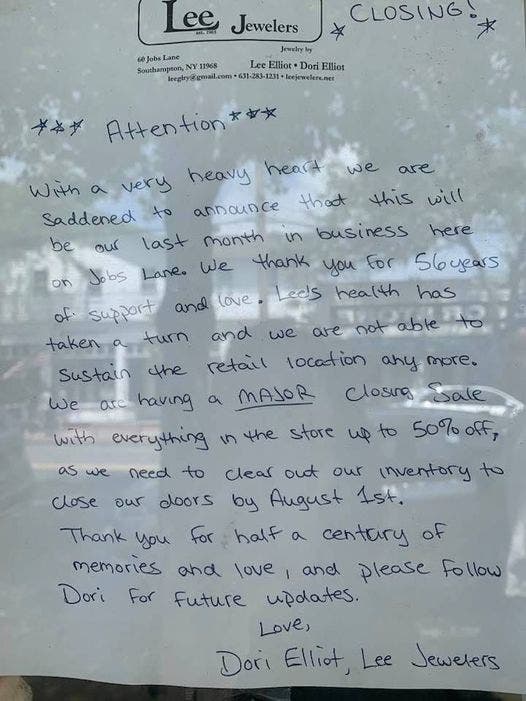 Lee Jewelers
CLOSING!
Jewelry by
60 Jobs Lane
Southampton, NY 11968
Lee Elliot • Dori Elliot
leejlry@gmail.com • 631-283-1231 • leejewelers.net
*** Attention ***
With a very heavy heart we are
saddened to announce that this will
be our last month in business here
on Jobs Lane. We thank you for 56 years
of support and love. Lee's health has
taken a turn and we are not able to
sustain the retail location any more.
We are having a MAJOR Closing Sale
with everything in the store up to 50% off,
as we need to clear out our inventory to
close our doors by August 1st.
Thank you for half a century of
memories and love, and please follow
Dori for future updates.
Love,
Dori Elliot, Lee Jewelers